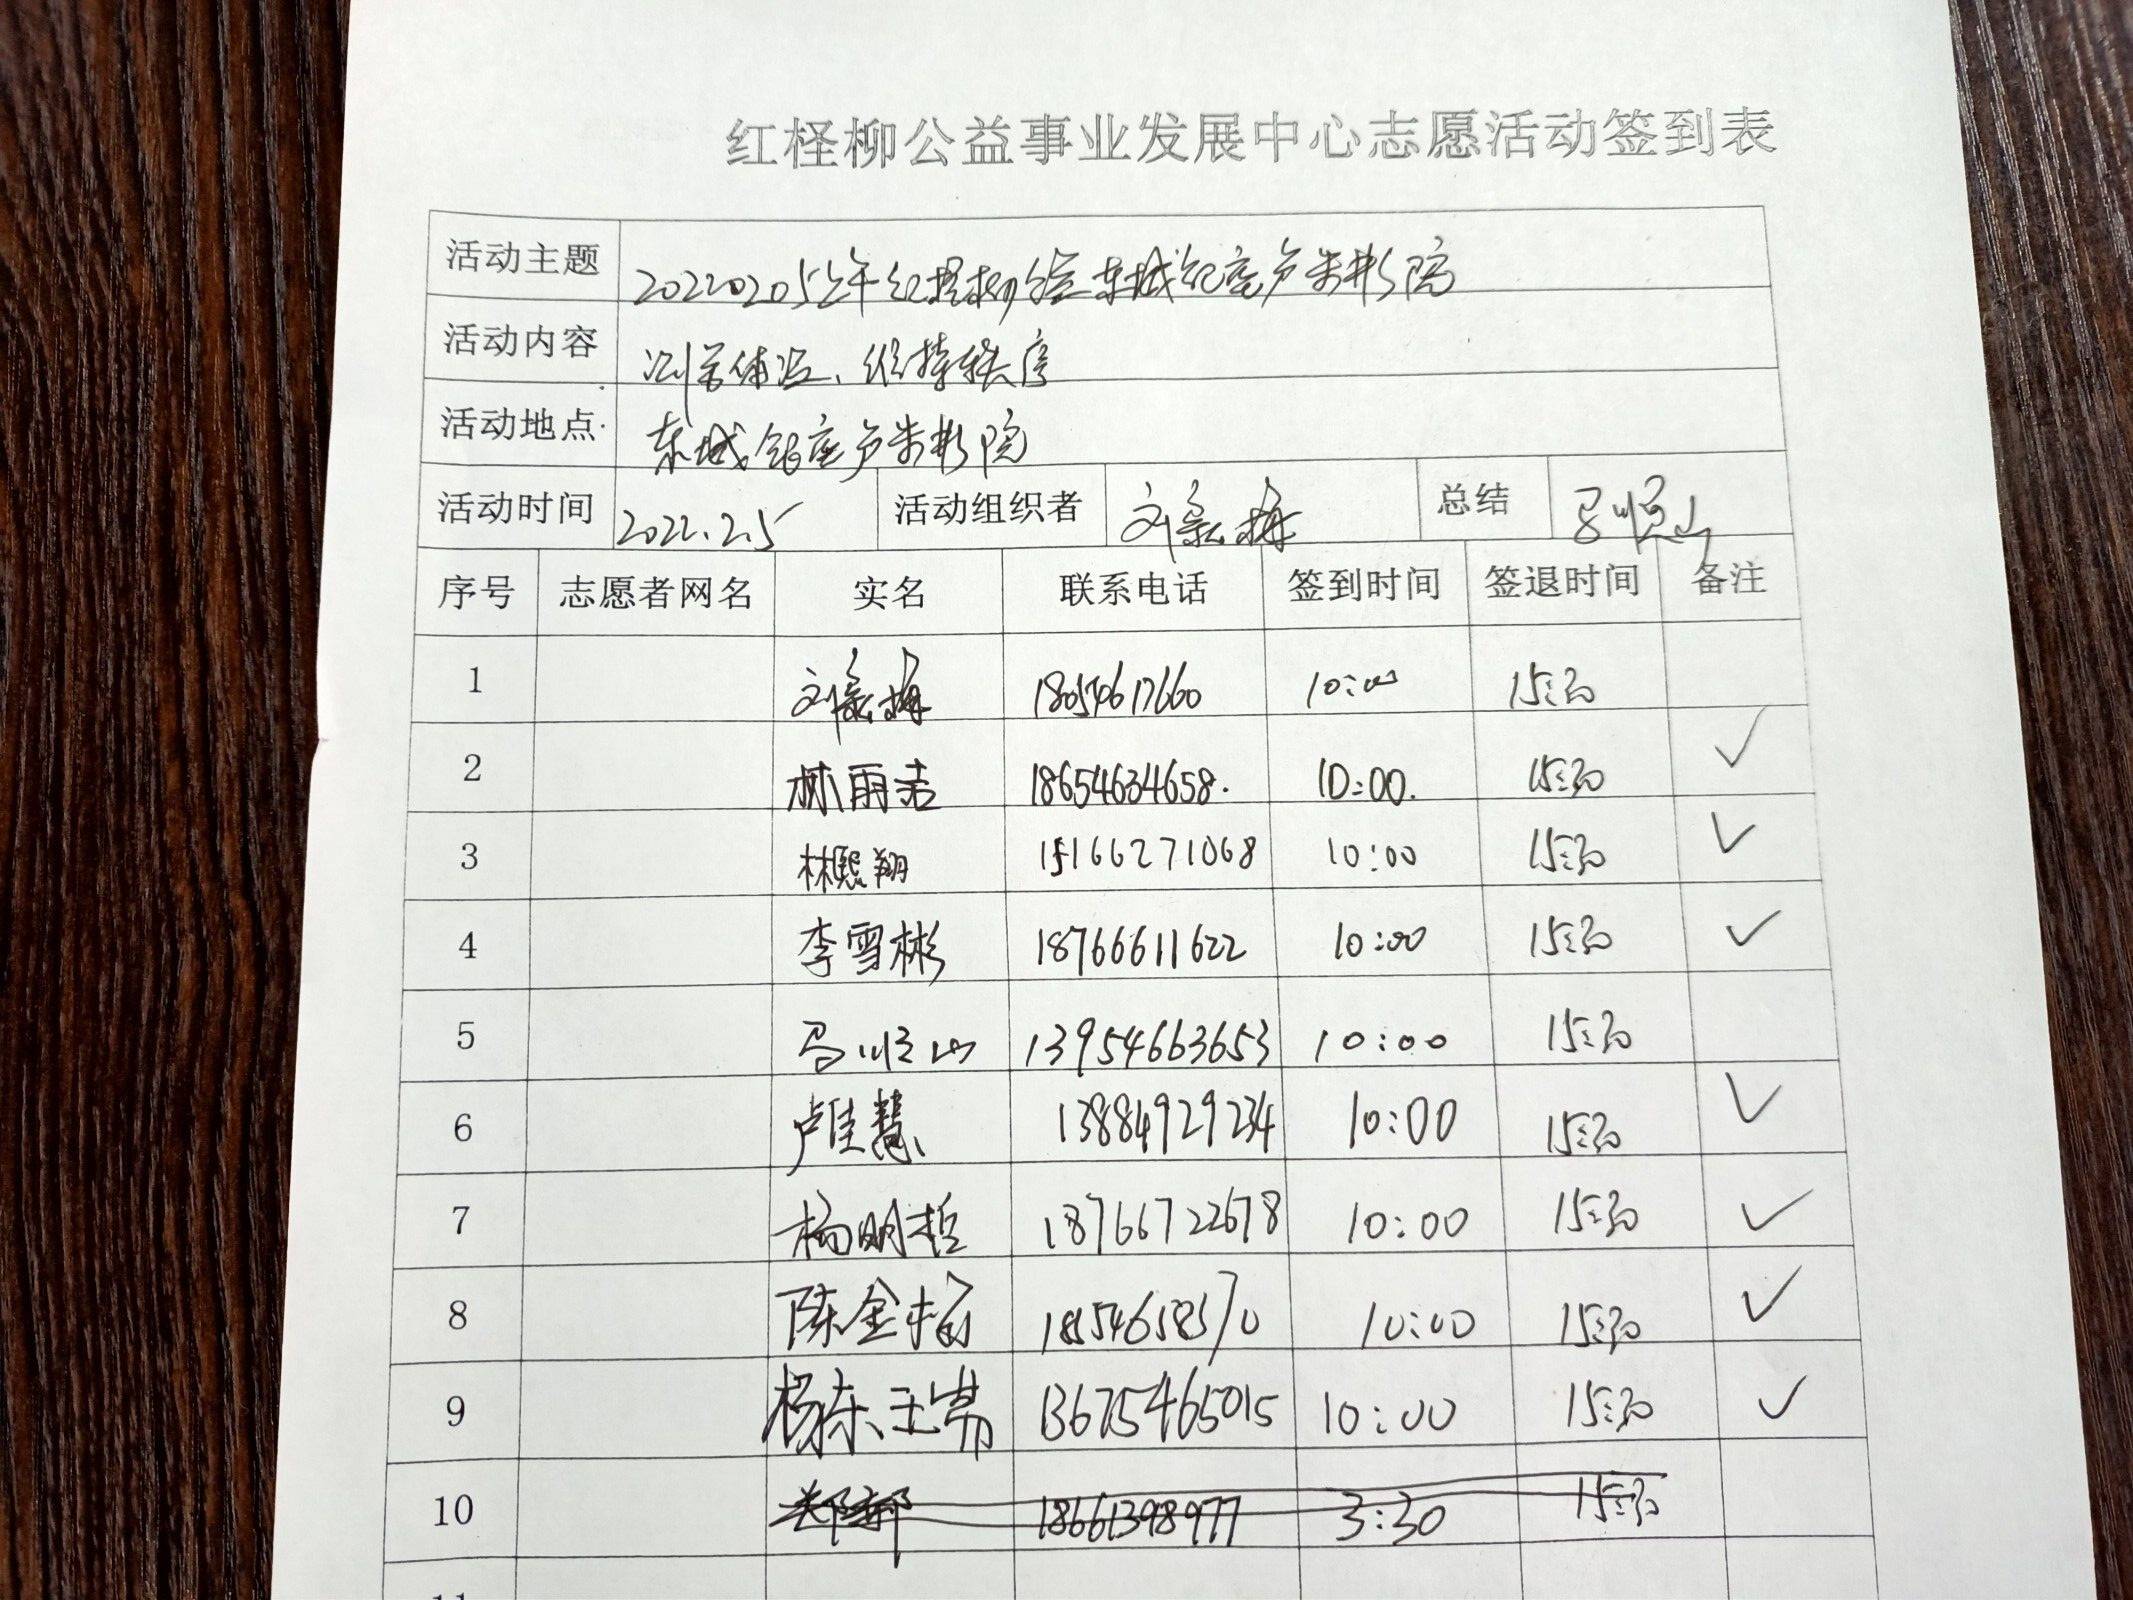 红柽柳公益事业发展中心志愿活动签到表
活动主题 20220205上午红柽柳 东城银座卢米影院
活动内容 测量体温、维持秩序
活动地点 东城银座卢米影院
活动时间 2022.2.5 活动组织者 刘 梅 总结 马顺山
序号 志愿者网名 实名 联系电话 签到时间 签退时间 备注
1 刘 梅 18054617660 10:00 15:30
2 林雨洁 18654634658. 10:00. 15:30 ✓
3 林熙翔 15166271068 10:00 15:30 ✓
4 李雪彬 18766611622 10:00 15:30 ✓
5 马顺山 13954663653 10:00 15:30
6 卢佳慧 13884929234 10:00 15:30 ✓
7 杨明哲 18766722678 10:00 15:30 ✓
8 陈金梅 10:00 15:30 ✓
9 杨东、王 13675465015 10:00 15:30 ✓
10 18661398977 3:30 15:30
11